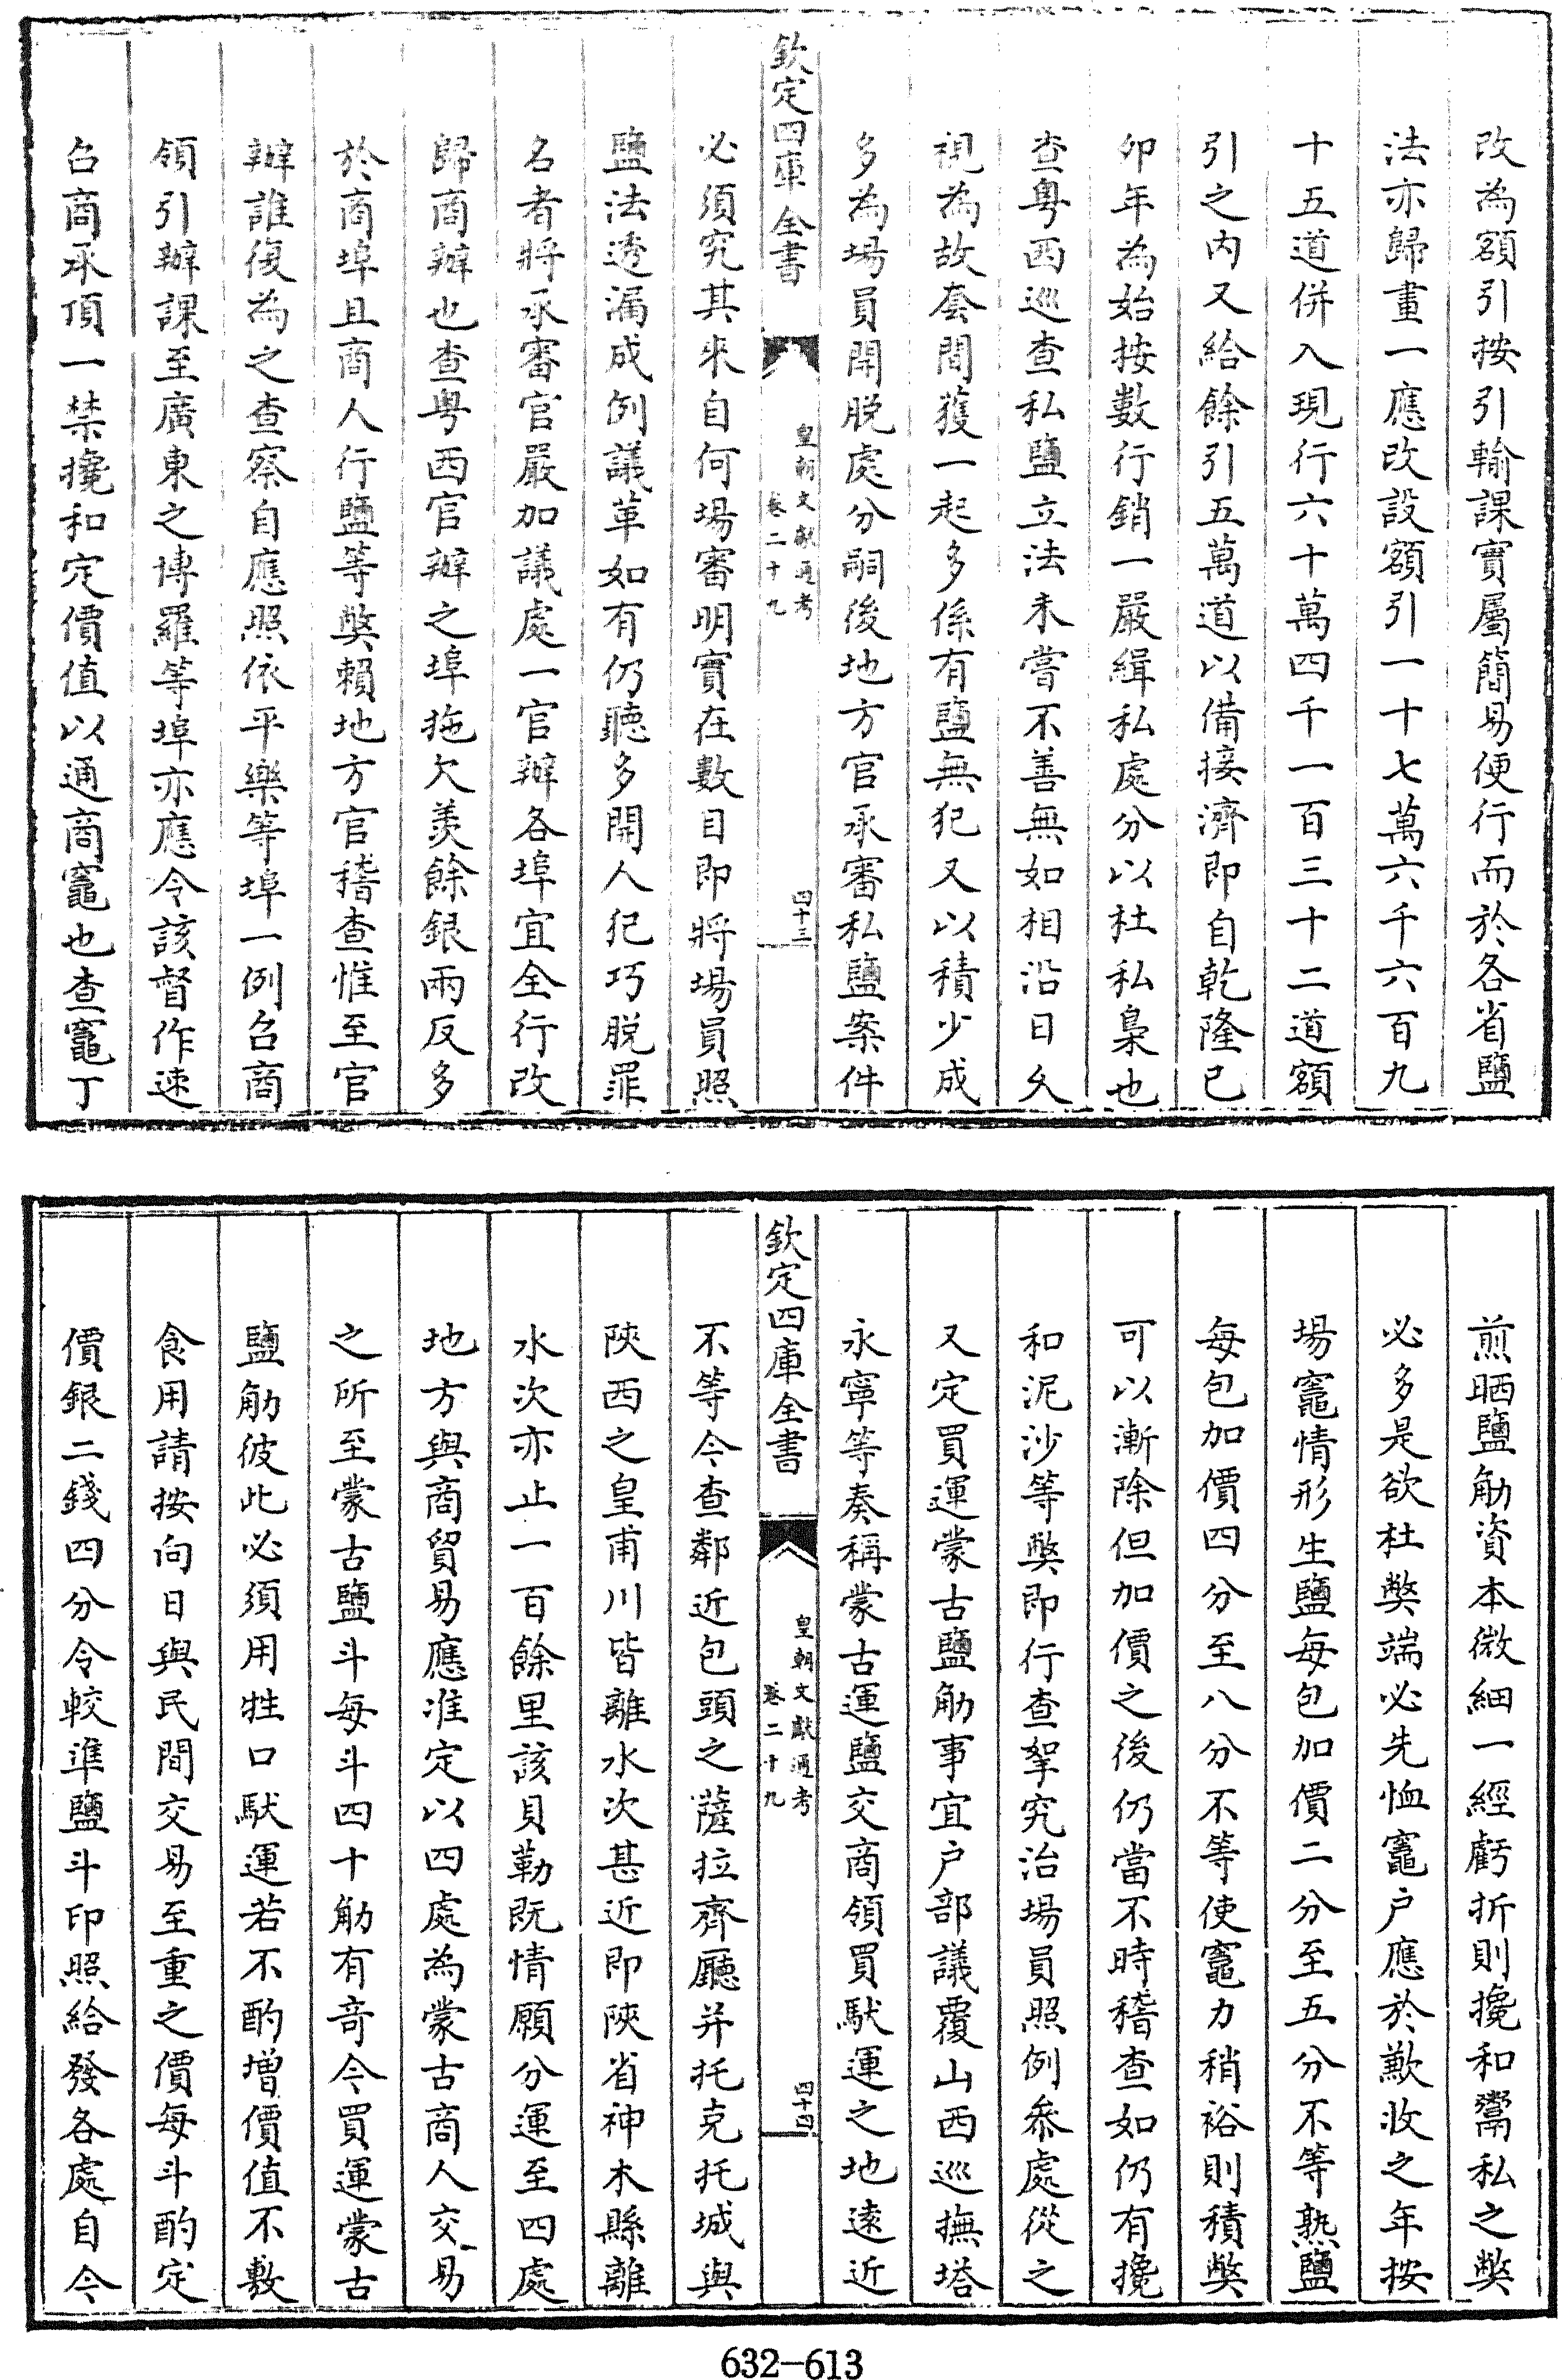 改為額引按引輸課實屬簡易便行而於各省鹽
法亦歸畫一應改設額引一十七萬六千六百九
十五道併入現行六十萬四千一百三十二道額
引之内又給餘引五萬道以備接濟即自乾隆已
卯年為始按數行銷一嚴緝私處分以杜私梟也
查粤西巡查私鹽立法未嘗不善無如相沿日久
視為故套間獲一起多係有鹽無犯又以積少成
多為場員開脱處分嗣後地方官承審私鹽案件
欽定四庫全書
皇朝文獻通考
卷二十九
四十三
必須究其來自何場審明實在數目即將場員照
鹽法透漏成例議革如有仍聽多開人犯巧脱罪
名者將承審官嚴加議處一官辦各埠宜全行改
歸商辦也查粤西官辦之埠拖欠羨餘銀兩反多
於商埠且商人行鹽等獘賴地方官稽查惟至官
辦誰復為之查察自應照依平樂等埠一例召商
領引辦課至廣東之博羅等埠亦應令該督作速
召商承頂一禁攙和定價值以通商竈也查竈丁
煎晒鹽觔資本微細一經虧折則攙和鬻私之獘
必多是欲杜獘端必先恤竈户應於歉收之年按
場竈情形生鹽每包加價二分至五分不等熟鹽
每包加價四分至八分不等使竈力稍裕則積獘
可以漸除但加價之後仍當不時稽查如仍有攙
和泥沙等獘即行查拏究治場員照例叅處從之
又定買運蒙古鹽觔事宜户部議覆山西巡撫塔
永寧等奏稱蒙古運鹽交商領買馱運之地遠近
欽定四庫全書
皇朝文獻通考
卷二十九
四十四
不等今查鄰近包頭之薩拉齊廳并托克托城與
陜西之皇甫川皆離水次甚近即陜省神木縣離
水次亦止一百餘里該貝勒既情願分運至四處
地方與商貿易應准定以四處為蒙古商人交易
之所至蒙古鹽斗每斗四十觔有奇今買運蒙古
鹽觔彼此必須用牲口馱運若不酌増價值不敷
食用請按向日與民間交易至重之價每斗酌定
價銀二錢四分令較準鹽斗印照給發各處自今
632-613